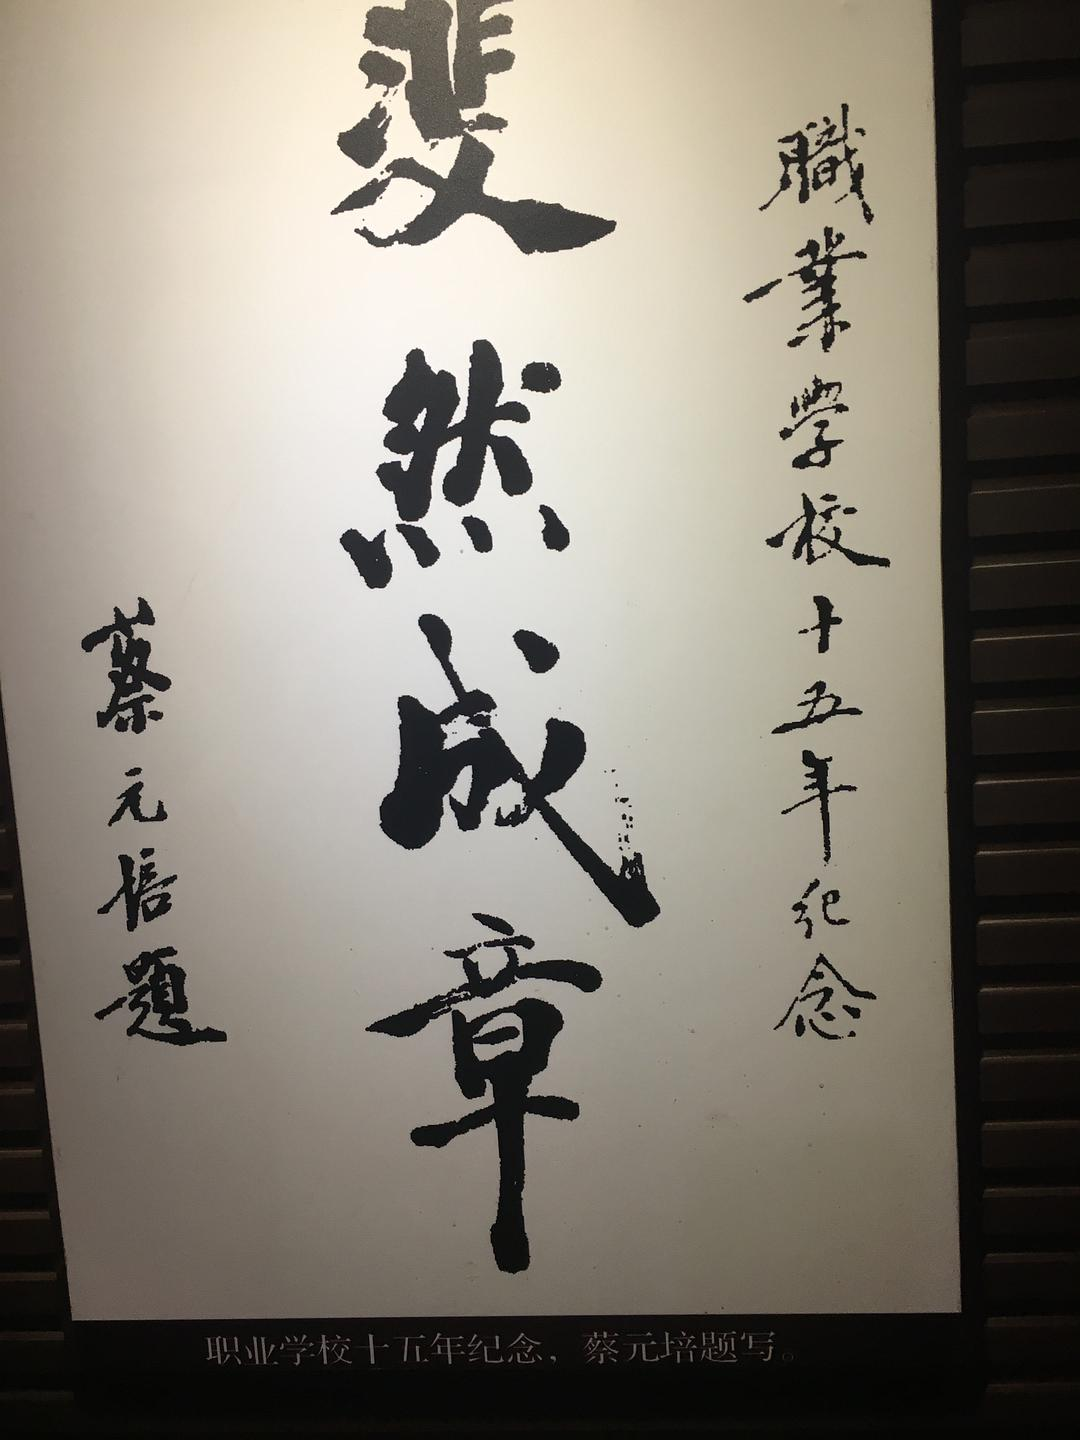 職業學校十五年纪念
斐然成章
蔡元培題
职业学校十五年纪念，蔡元培题写。